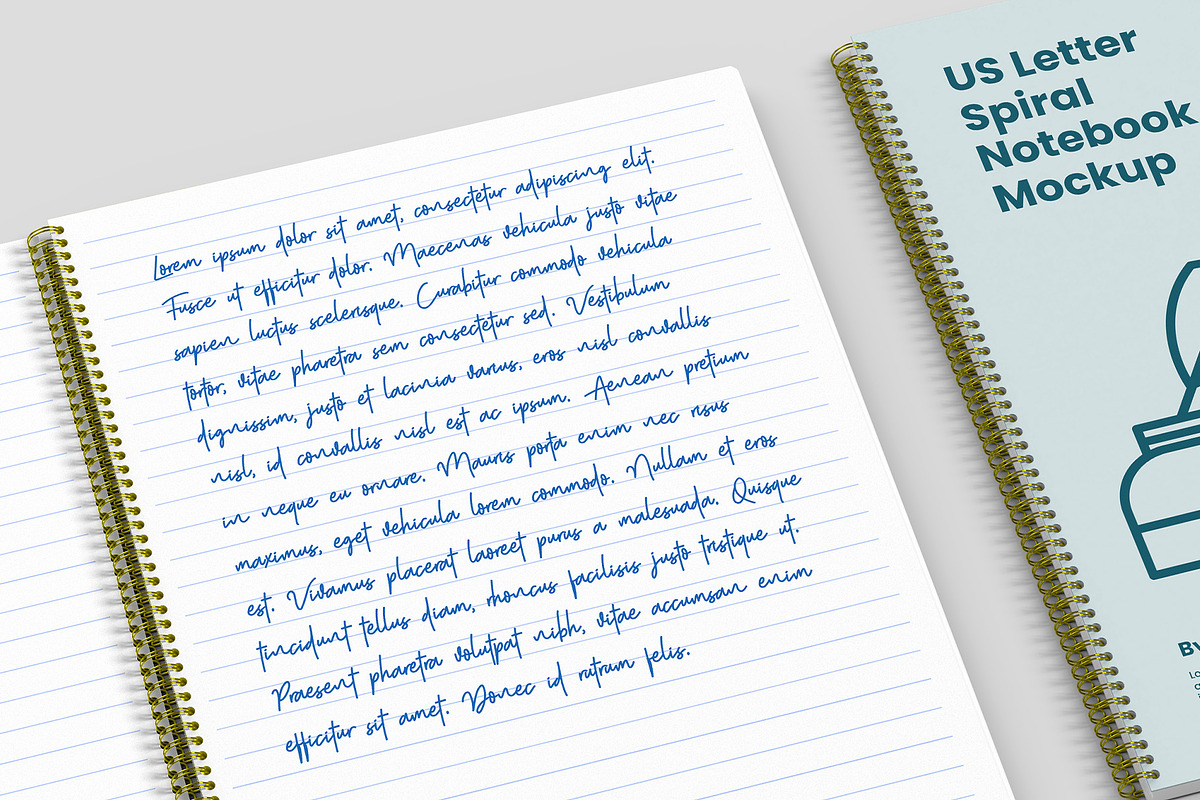 Lorem ipsum dolor sit amet, consectetur adipiscing elit.
Fusce ut efficitur dolor. Maecenas vehicula justo vitae
sapien luctus scelerisque. Curabitur commodo vehicula
tortor, vitae pharetra sem consectetur sed. Vestibulum
dignissim, justo et lacinia varius, eros nisl convallis
nisl, id convallis nisl est ac ipsum. Aenean pretium
in neque eu ornare. Mauris porta enim nec risus
maximus, eget vehicula lorem commodo. Nullam et eros
est. Vivamus placerat laoreet purus a malesuada. Quisque
tincidunt tellus diam, rhoncus facilisis justo tristique ut.
Praesent pharetra volutpat nibh, vitae accumsan enim
efficitur sit amet. Donec id rutrum felis.
US Letter
Spiral
Notebook
Mockup